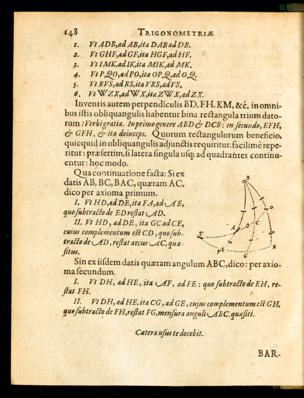 148 TRIGONOMETRIÆ
1. Vt ADB, ad AB, ita DAB ad DB.
2. Vt GHF, ad GF, ita HGF, ad HF.
3. Vt IMK, ad IK, ita MIK, ad MK.
4. Vt PQO, ad PO, ita OPQ, ad OQ.
5. Vt RVS, ad RS, ita VRS, ad VS.
6. Vt WZX, ad WX, ita ZWX, ad ZX.
Inventis autem perpendiculis BD, FH, KM, &c. in omni-
bus istis obliquangulis habentur bina rectangula trium dato-
rum: Verbi gratia. In primo genere ABD & DCB: in secundo, EFH,
& GFH, & ita deinceps. Quorum rectangulorum beneficio,
quicquid in obliquangulis adjunctis requiritur, facilimè repe-
ritur: præsertim, si latera singula usq; ad quadrantes continu-
entur: hoc modo.
Qua continuatione facta: Si ex
datis AB, BC, BAC, quæram AC,
dico per axioma primum.
I. Vt HD, ad DE, ita FA, ad AE,
quo subtracto de ED restat AD.
II. Vt HD, ad DE, ita GC ad CE,
cujus complementum est CD, quo sub-
tracto de AD, restat arcus AC, quæ-
situs.
Sin ex iisdem datis quæram angulum ABC, dico: per axio-
ma secundum.
I. Vt DH, ad HE, ita AF, ad FE: quo subtracto de EH, re-
stat FH.
II. Vt DH, ad HE, ita CG, ad GE, cujus complementum est GH,
quo subtracto de FH, restat FG, mensura anguli ABC, quæsiti.
Cætera usus te docebit.
BAR-